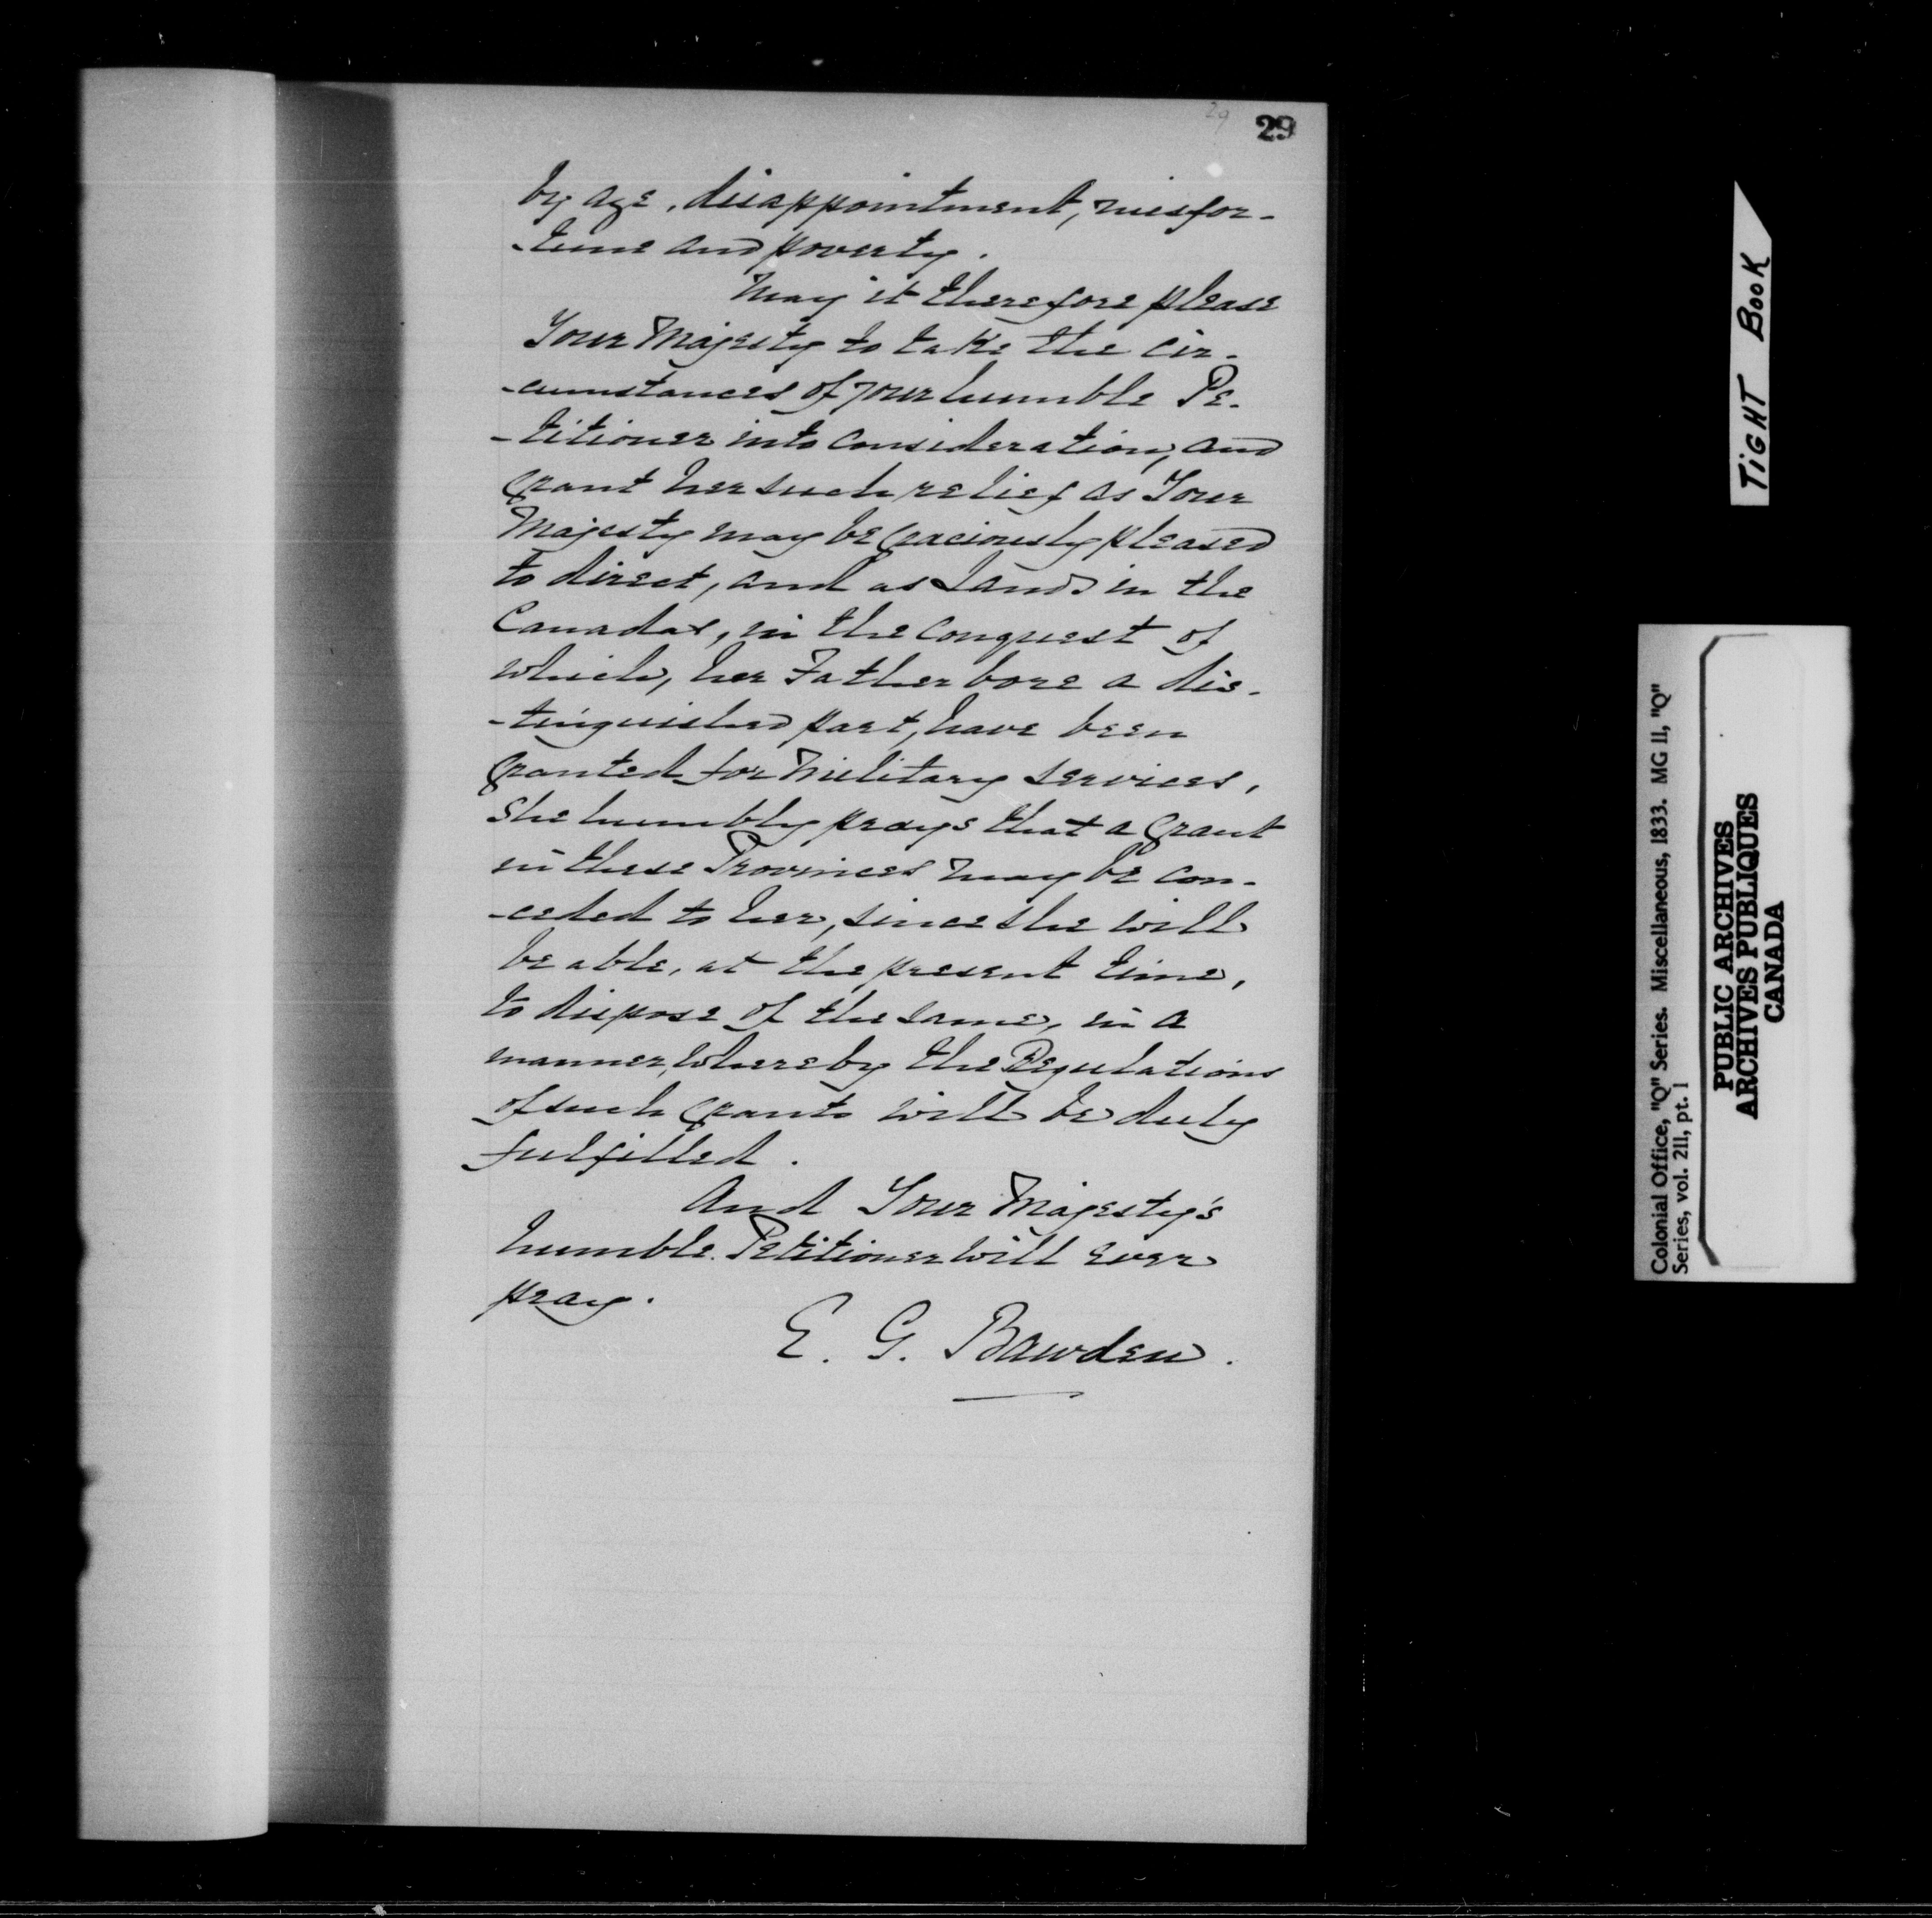 29
29
by age, disappointment, misfor-
-tune and poverty.
May it therefore please
Your Majesty to take the cir-
-cumstances of your humble Pe-
-titioner into consideration, and
grant her such relief as Your
Majesty may be graciously pleased
to direct, and as Lands in the
Canadas, in the conquest of
which, her Father bore a dis-
-tinguished part, have been
granted for Military services,
She humbly prays that a Grant
in these Provinces may be con-
-ceded to her, since she will
be able, at the present time,
to dispose of the same, in a
manner, whereby the Regulations
of such Grants will be duly
fulfilled.
And Your Majesty's
humble Petitioner will ever
pray.
E. G. Bawden.
TIGHT BOOK
Colonial Office, "Q" Series. Miscellaneous, 1833. MG 11, "Q"
Series, vol. 211, pt. 1
PUBLIC ARCHIVES
ARCHIVES PUBLIQUES
CANADA